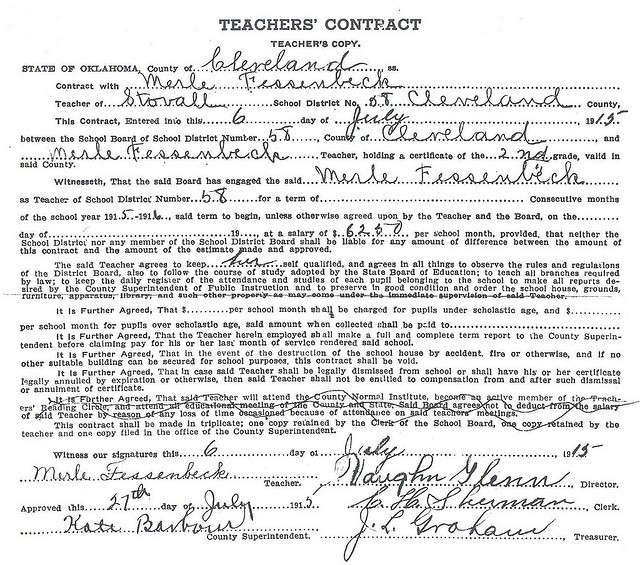 TEACHERS' CONTRACT
TEACHER'S COPY.
STATE OF OKLAHOMA, County of Cleveland ss.
Contract with Merle Fessenbeck
Teacher of Stovall School District No. 58 Cleveland County,
This Contract, Entered into this 6 day of July 1915
between the School Board of School District Number 58, County of Cleveland, and
Merle Fessenbeck Teacher, holding a certificate of the 2nd grade, valid in
said County.
Witnesseth, That the said Board has engaged the said Merle Fessenbeck
as Teacher of School District Number 58 for a term of Consecutive months
of the school year 1915-1916, said term to begin, unless otherwise agreed upon by the Teacher and the Board, on the
day of 19, at a salary of $62.50 per school month, provided, that neither the
School District nor any member of the School District Board shall be liable for any amount of difference between the amount of
this contract and the amount of the estimate made and approved.
The said Teacher agrees to keep her self qualified, and agrees in all things to observe the rules and regulations
of the District Board, also to follow the course of study adopted by the State Board of Education; to teach all branches required
by law; to keep the daily register of the attendance and studies of each pupil belonging to the school to make all reports de-
sired by the County Superintendent of Public Instruction and to preserve in good condition and order the school house, grounds,
furniture, apparatus, library, and such other property as may come under the immediate supervision of said Teacher.
It is Further Agreed, That $ per school month shall be charged for pupils under scholastic age, and $
per school month for pupils over scholastic age, said amount when collected shall be paid to
It is Further Agreed, That the Teacher herein employed shall make a full and complete term report to the County Superin-
tendent before claiming pay for his or her last month of service rendered said school.
It is Further Agreed, That in the event of the destruction of the school house by accident. fire or otherwise, and if no
other suitable building can be secured for school purposes, this contract shall be void.
It is Further Agreed, That in case said Teacher shall be legally dismissed from school or shall have his or her certificate
legally annulled by expiration or otherwise, then said Teacher shall not be enlitled to compensation from and after such dismissal
or annulment of certificate.
It is Further Agreed, That said Teacher will attend the County Normal Institute, become an active member of the Teach-
ers' Reading Circle, and attend all educational meeting of the County and State. Said Board agrees not to deduct from the salary
of said Teacher by reason of any loss of time occasioned because of attendance on said teachers' meetings.
This contract shall be made in triplicate; one copy retained by the Clerk of the School Board, one copy retained by the
teacher and one copy filed in the office of the County Superintendent.
Witness our signatures this 6 day of July, 1915
Merle Fessenbeck Teacher. Vaughn Glenn, Director.
Approved this 27th day of July 1915 C. H. Sherman, Clerk.
Kate Barbour County Superintendent. J. L. Graham, Treasurer.